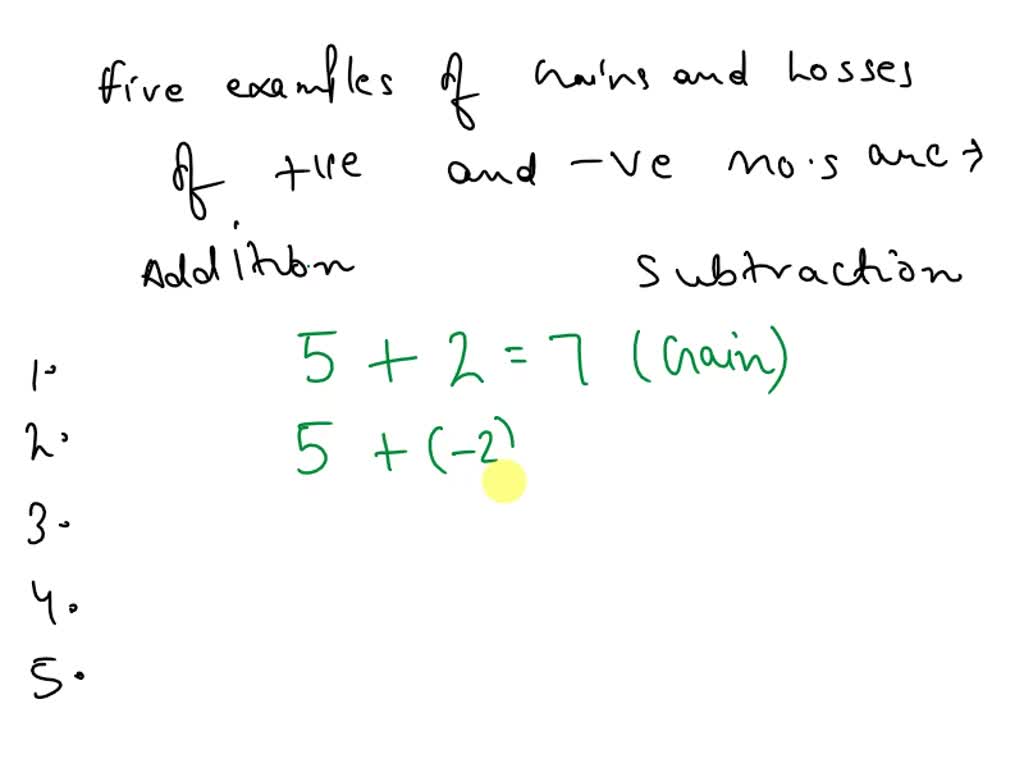 five examples of Gains and Losses
of +ve and -ve no.s are →
Addition Subtraction
1. 5 + 2 = 7 (Gain)
2. 5 + (-2)
3.
4.
5.